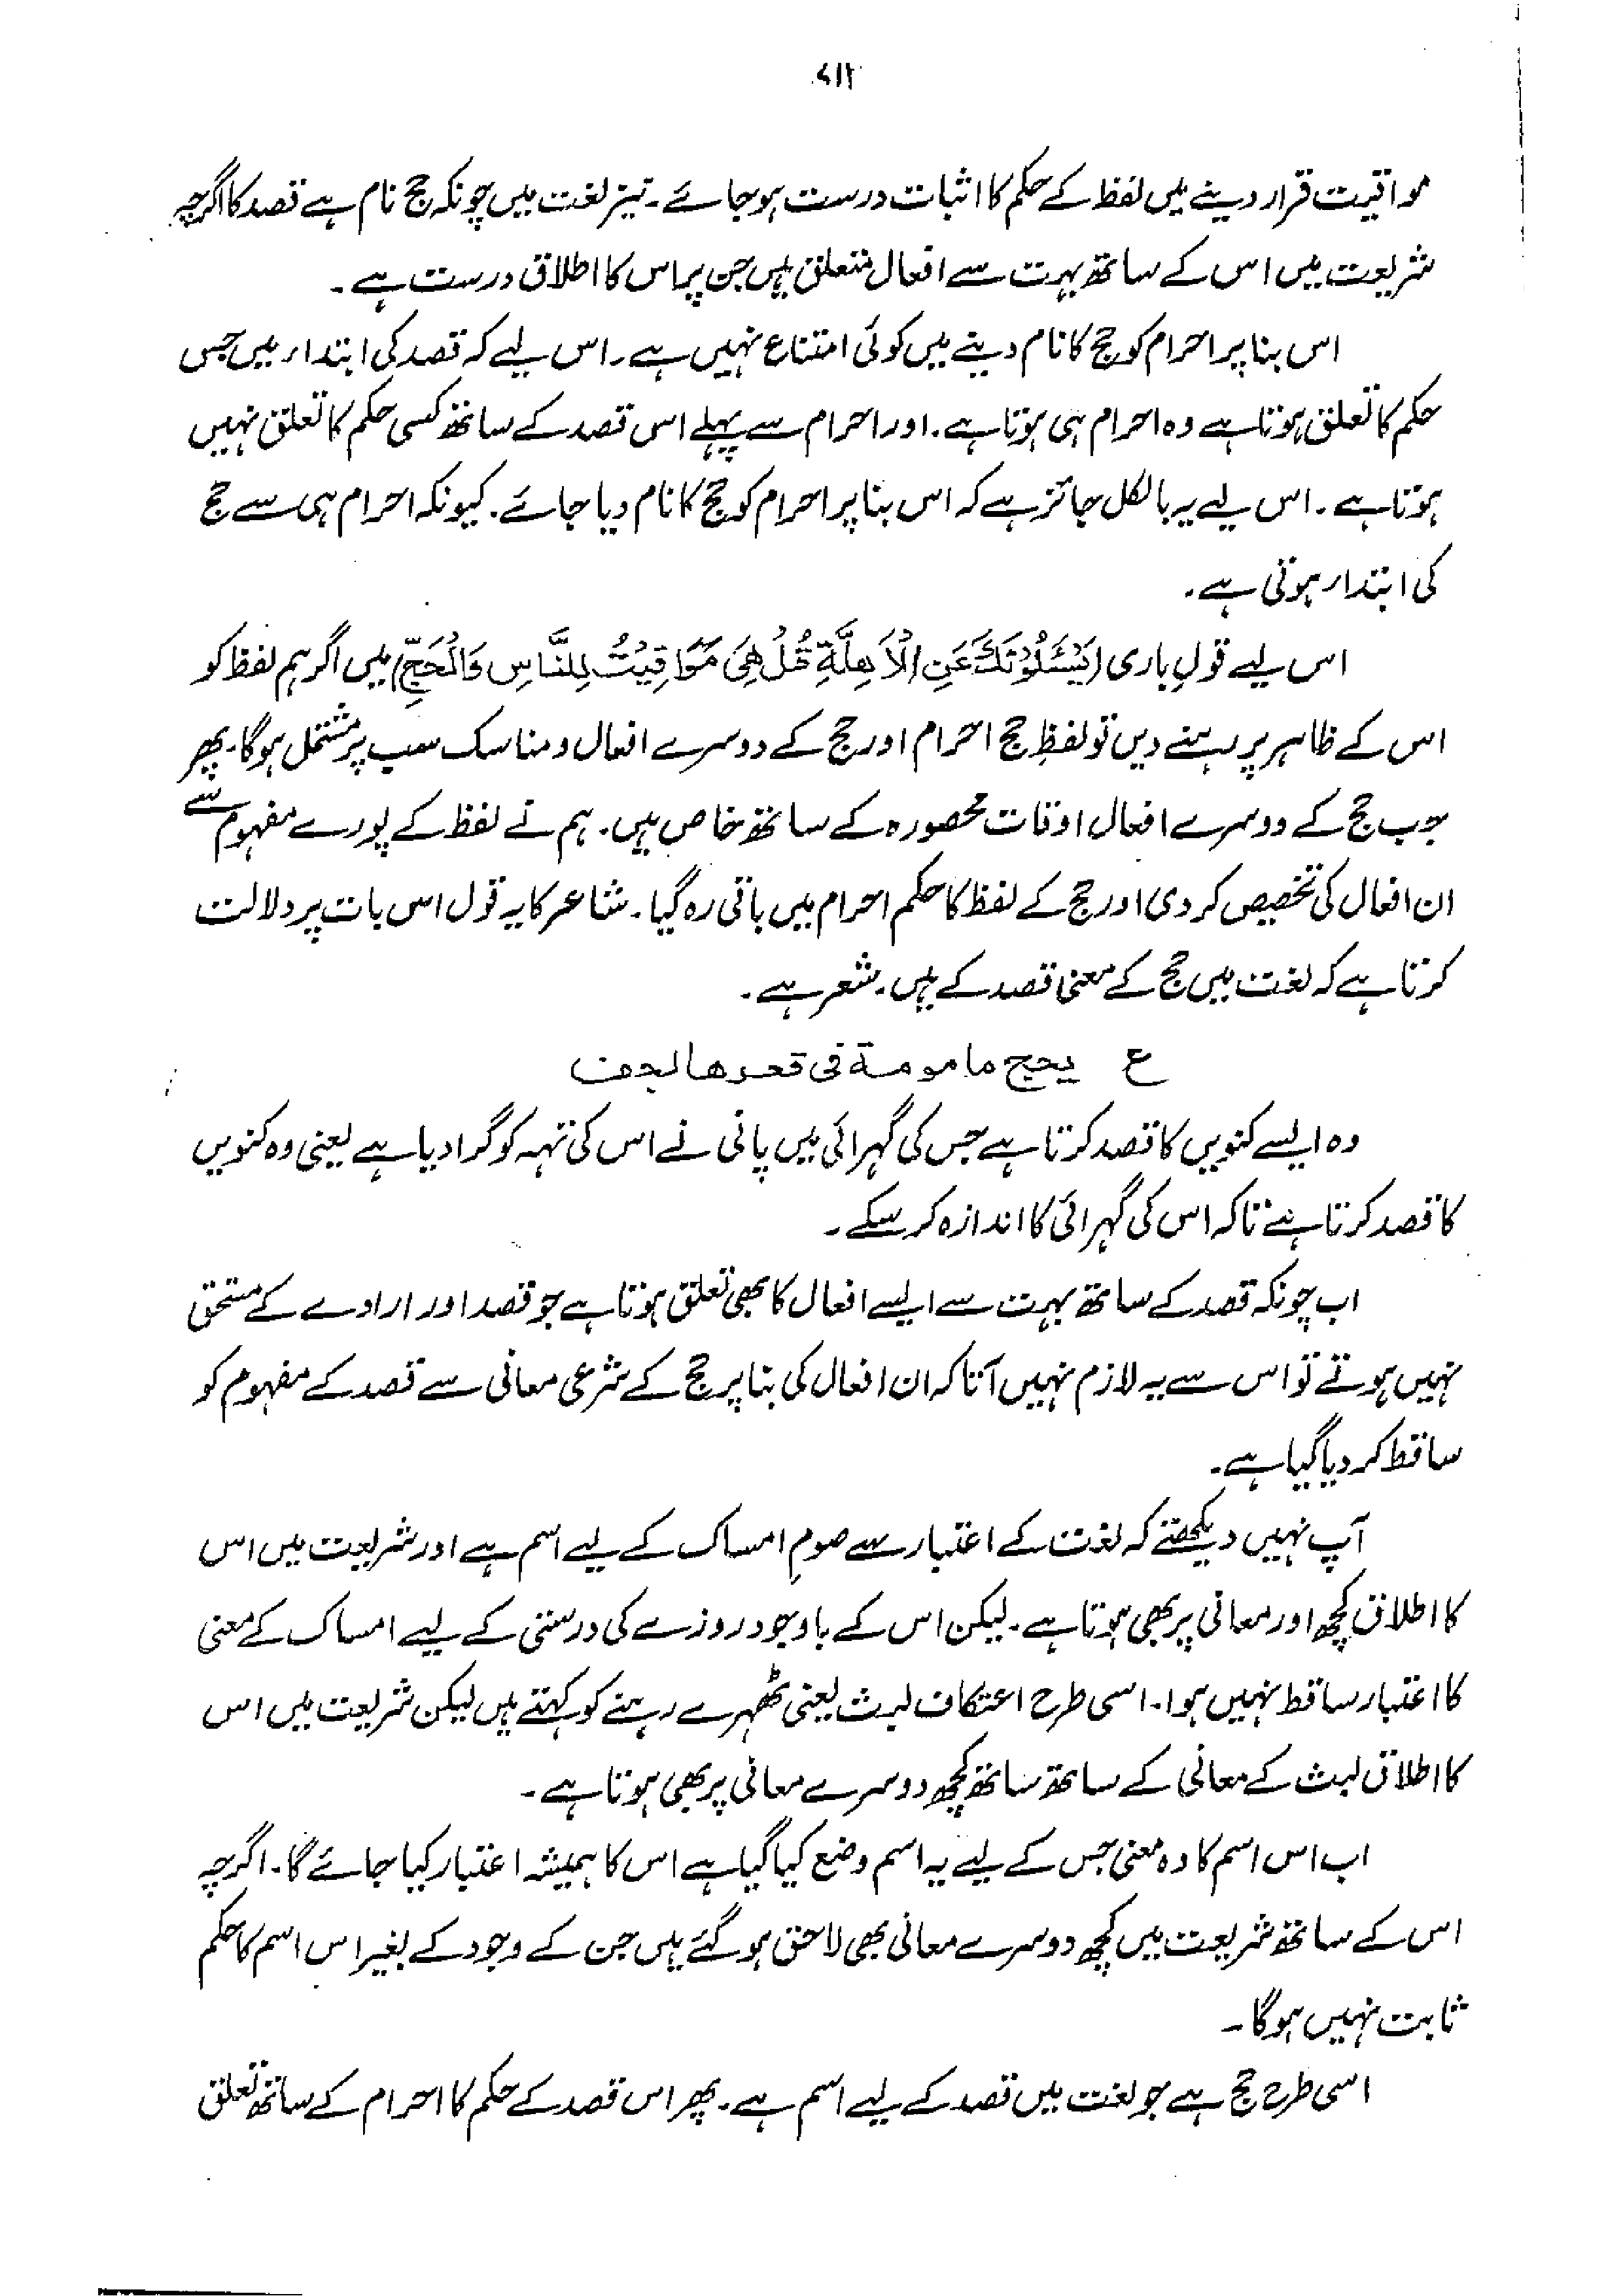 ۷۱۲
مواقیت قرار دینے میں لفظ کے حکم کا اثبات درست ہو جائے۔ نیز لغت میں چونکہ حج نام ہے قصد کا اگرچہ
شریعت میں اس کے ساتھ بہت سے افعال متعلق ہیں جن پر اس کا اطلاق درست ہے۔
اس بنا پر احرام کو حج کا نام دینے میں کوئی امتناع نہیں ہے۔ اس لیے کہ قصد کی ابتداء میں جس
حکم کا تعلق ہوتا ہے وہ احرام ہی ہوتا ہے۔ اور احرام سے پہلے اس قصد کے ساتھ کسی حکم کا تعلق نہیں
ہوتا ہے۔ اس لیے یہ بالکل جائز ہے کہ اس بنا پر احرام کو حج کا نام دیا جائے۔ کیونکہ احرام ہی سے حج
کی ابتداء ہوتی ہے۔
اس لیے قولِ باری (یَسْئَلُوْنَکَ عَنِ الْاَھِلَّۃِ قُلْ ھِیَ مَوَاقِیْتُ لِلنَّاسِ وَالْحَجِّ) میں اگر ہم لفظ کو
اس کے ظاہر پر رہنے دیں تو لفظِ حج احرام اور حج کے دوسرے افعال و مناسک سب پر مشتمل ہوگا۔ پھر
جب حج کے دوسرے افعال اوقات محصورہ کے ساتھ خاص ہیں۔ ہم نے لفظ کے پورے مفہوم سے
ان افعال کی تخصیص کر دی اور حج کے لفظ کا حکم احرام میں باقی رہ گیا۔ شاعر کا یہ قول اس بات پر دلالت
کرتا ہے کہ لغت میں حج کے معنی قصد کے ہیں۔ شعر ہے۔
ع یحج مامومة فی قعرها لجف
وہ ایسے کنویں کا قصد کرتا ہے جس کی گہرائی میں پانی نے اس کی تہہ کو گرا دیا ہے یعنی وہ کنویں
کا قصد کرتا ہے تاکہ اس کی گہرائی کا اندازہ کر سکے۔
اب چونکہ قصد کے ساتھ بہت سے ایسے افعال کا بھی تعلق ہوتا ہے جو قصد اور ارادے کے مستحق
نہیں ہوتے تو اس سے یہ لازم نہیں آتا کہ ان افعال کی بنا پر حج کے شرعی معانی سے قصد کے مفہوم کو
ساقط کر دیا گیا ہے۔
آپ نہیں دیکھتے کہ لغت کے اعتبار سے صومِ امساک کے لیے اسم ہے اور شریعت میں اس
کا اطلاق کچھ اور معانی پر بھی ہوتا ہے۔ لیکن اس کے باوجود روزے کی درستی کے لیے امساک کے معنی
کا اعتبار ساقط نہیں ہوا۔ اسی طرح اعتکاف لبث یعنی ٹھہرے رہنے کو کہتے ہیں لیکن شریعت میں اس
کا اطلاق لبث کے معانی کے ساتھ ساتھ کچھ دوسرے معانی پر بھی ہوتا ہے۔
اب اس اسم کا وہ معنی جس کے لیے یہ اسم وضع کیا گیا ہے اس کا ہمیشہ اعتبار کیا جائے گا۔ اگرچہ
اس کے ساتھ شریعت میں کچھ دوسرے معانی بھی لاحق ہو گئے ہیں جن کے وجود کے بغیر اس اسم کا حکم
ثابت نہیں ہوگا۔
اسی طرح حج ہے جو لغت میں قصد کے لیے اسم ہے۔ پھر اس قصد کے حکم کا احرام کے ساتھ تعلق